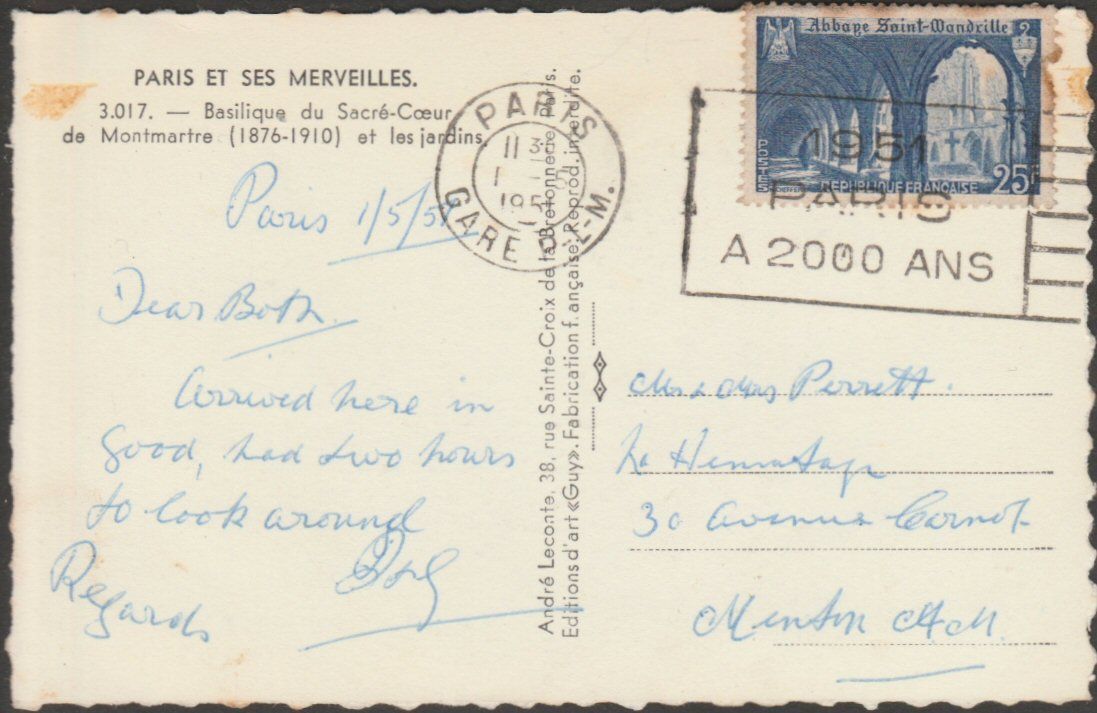 PARIS ET SES MERVEILLES.
3.017. — Basilique du Sacré-Cœur
de Montmartre (1876-1910) et les jardins.
Paris 1/5/51
Dear Both.
Arrived here in
good, had two hours
to look around
Regards
André Leconte, 38, rue Sainte-Croix de la Bretonnerie Paris.
Editions d'art «Guy». Fabrication française. Reprod. interdite.
PARIS
GARE P.L-M.
Abbaye Saint-Wandrille
POSTES
REPUBLIQUE FRANÇAISE
25F
1951
PARIS
A 2000 ANS
Mr & Mrs Perrett.
La Hermitage
30 Avenue Carnot
Menton A.M.